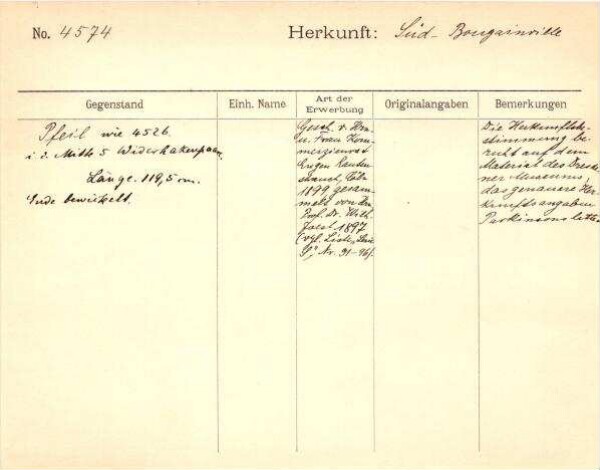 No. 4574
Herkunft: Süd-Bougainville
Gegenstand
Einh. Name
Art der Erwerbung
Originalangaben
Bemerkungen
Pfeil wie 4526
i. d. Mitte 5 Widerhakenpaare
Länge. 119,5 cm.
Ende bewickelt.
Gesch. v. Hrn.
u. Frau Kom-
merzienrat
Eugen Rauten-
strauch, Cöln
1899 gesam-
melt von Hrn
Prof. Dr. Wilh.
Joest 1897
(vgl. Liste, Serie
Nr. 91-96).
Die Herkunftsbe-
stimmung be-
ruht auf dem
Material des Dresde-
ner Museums,
das genauere Her-
kunftsangaben
Parkinsons